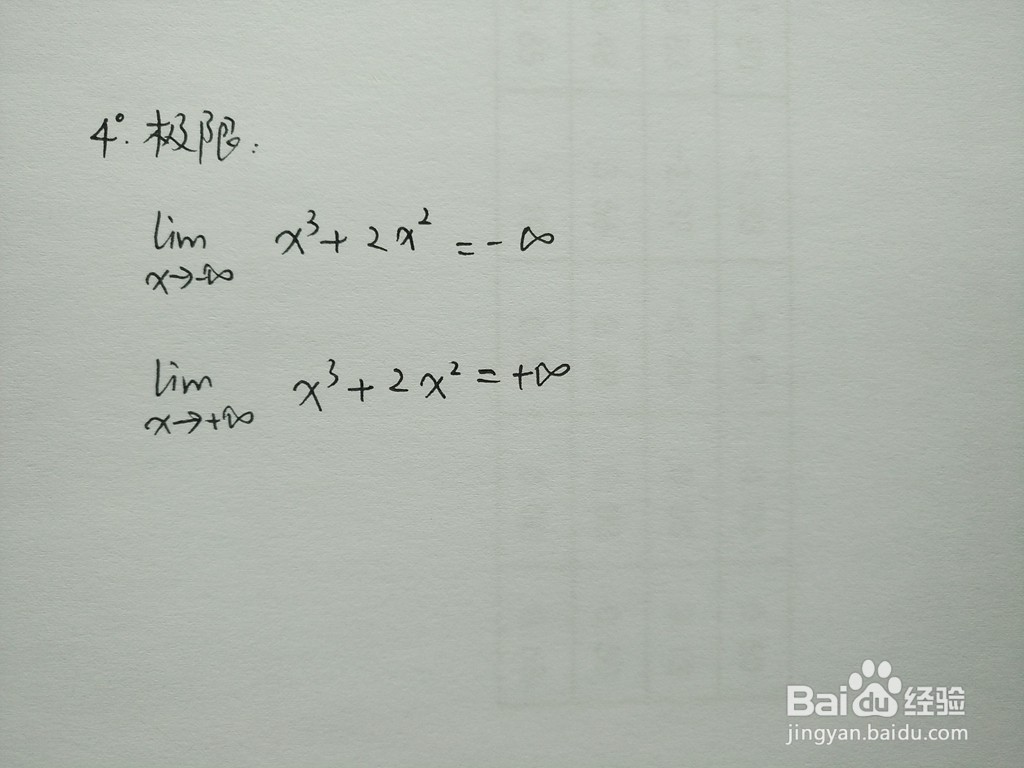 4°. 极限:
lim x³ + 2x² = -∞
x→-∞
lim x³ + 2x² = +∞
x→+∞
Baidu经验
jingyan.baidu.com